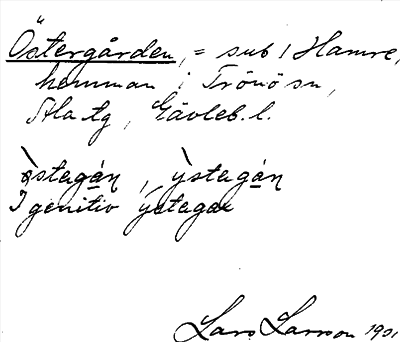 Östergården, = sub 1 Hamre,
hemman i Trönö sn,
Ala tg, Gävleb. l.
òstegán, ỳstegán
I genitiv ystega
Lars Larsson 1901